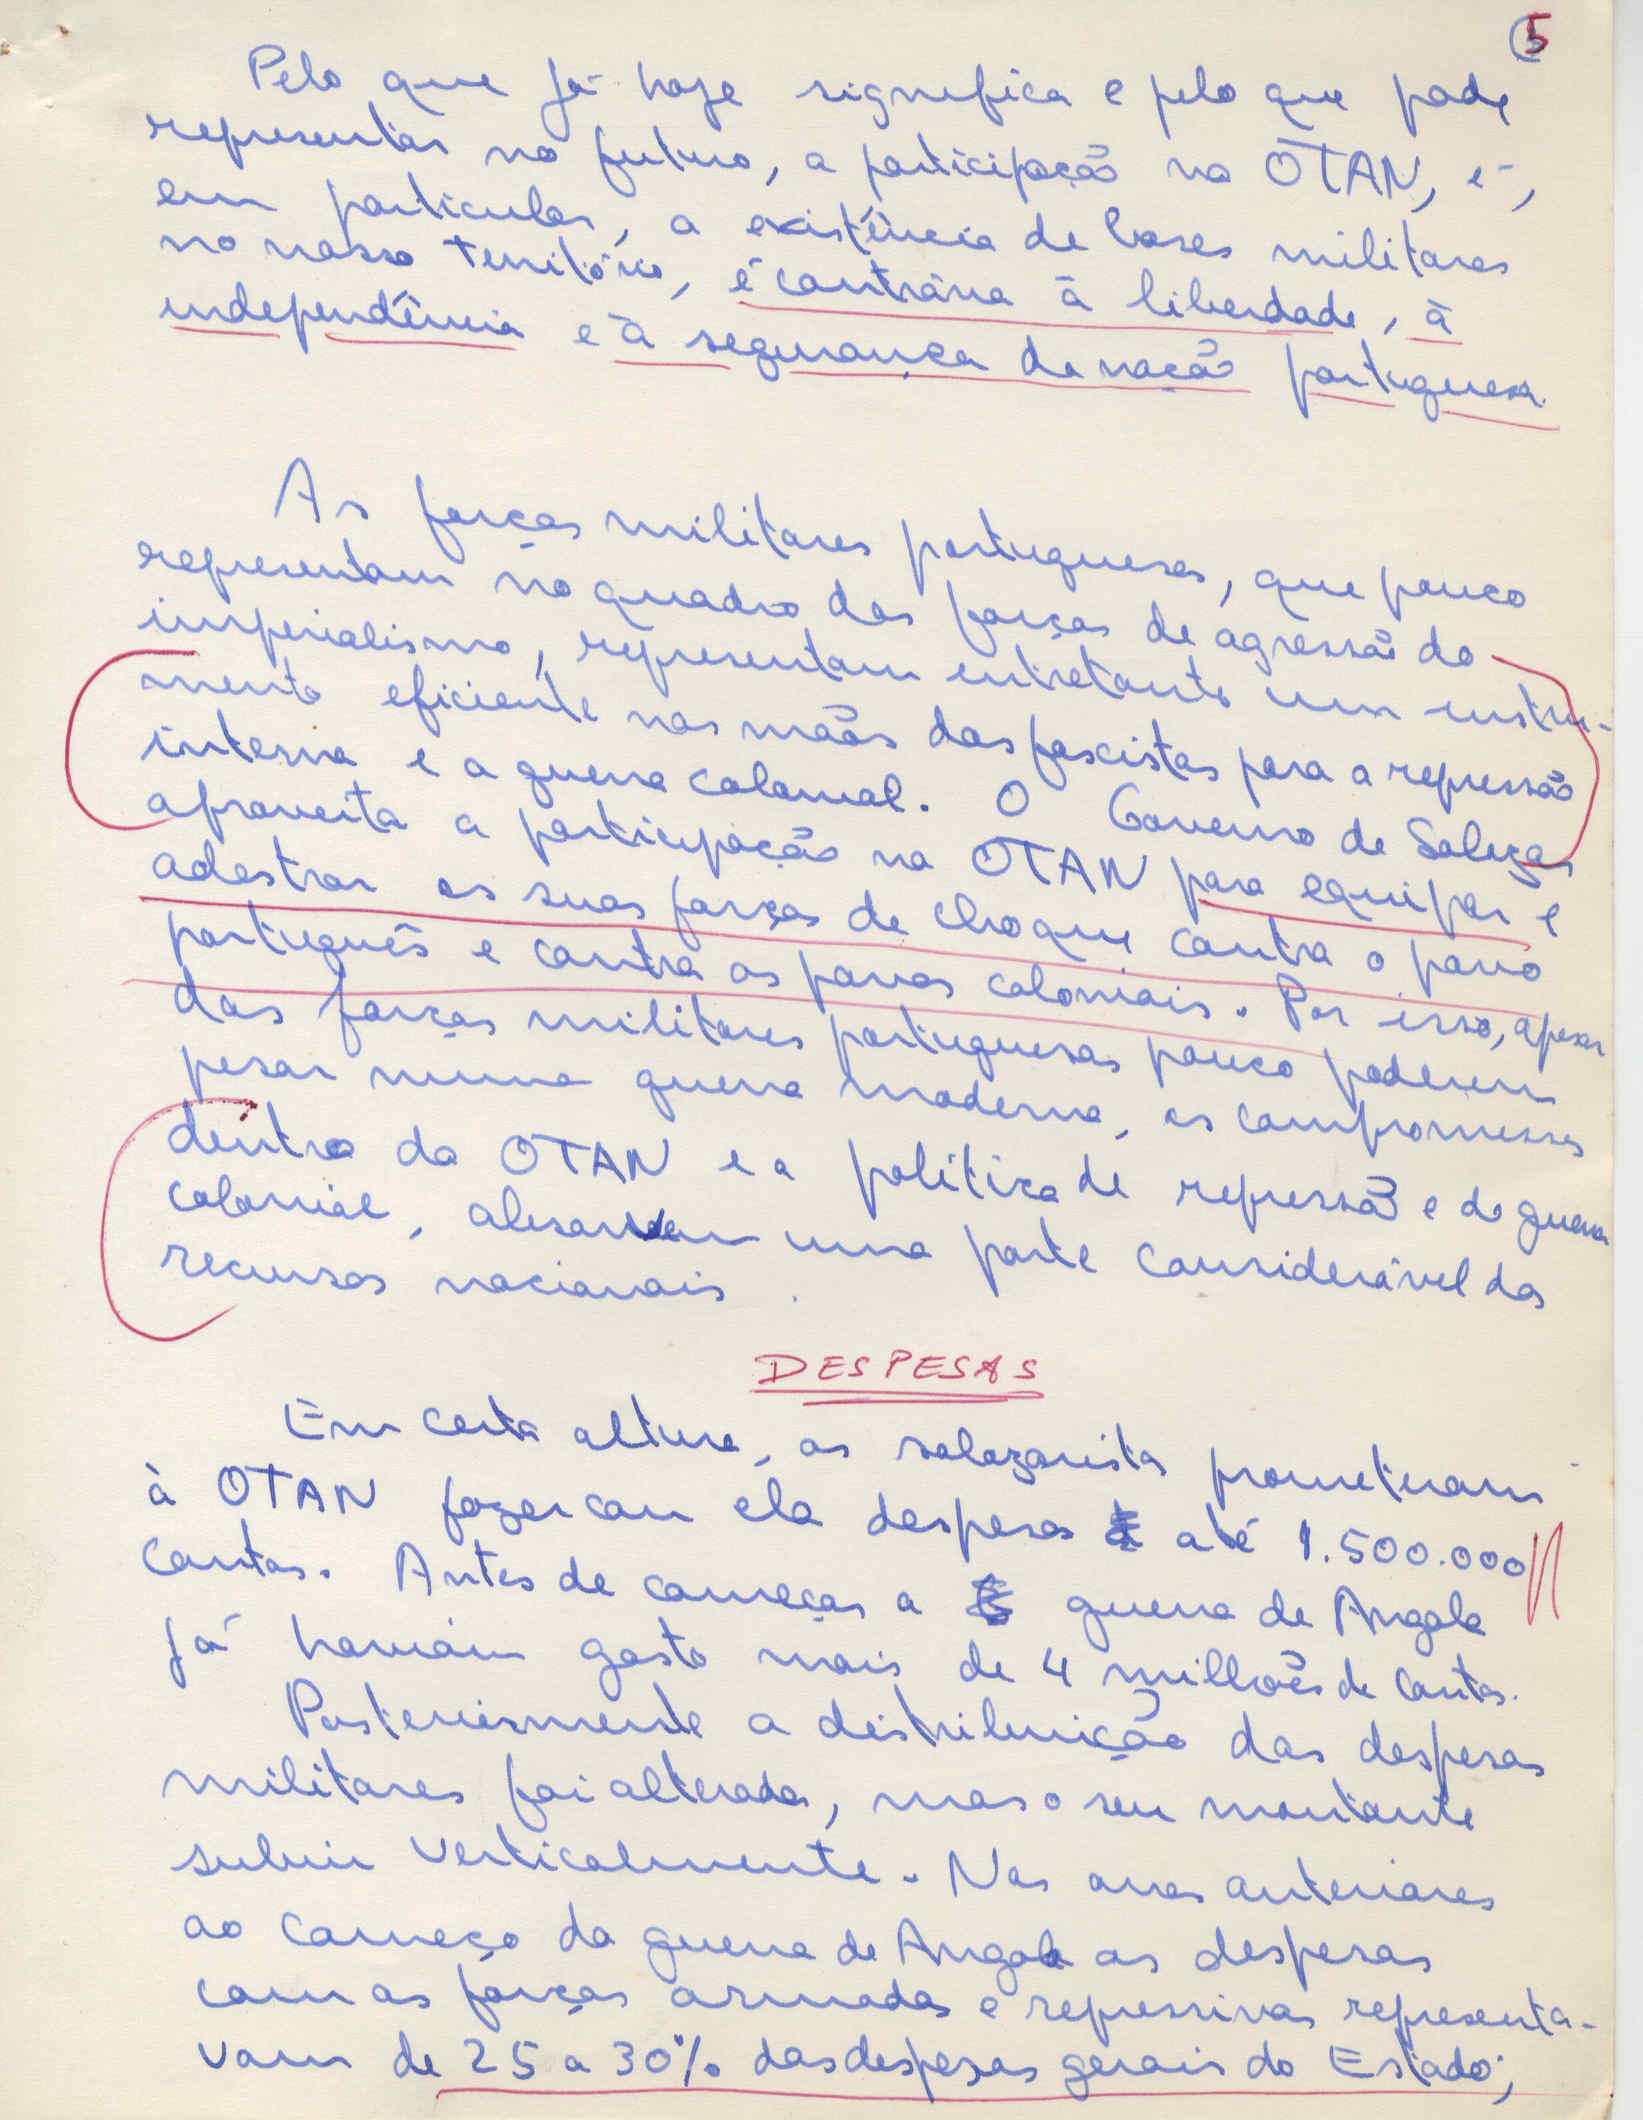 5
Pelo que já hoje significa e pelo que pode
representar no futuro, a participação na OTAN, e,
em particular, a existência de bases militares
no nosso território, é contrária à liberdade, à
independência e à segurança da nação portuguesa.
As forças militares portuguesas, que pouco
representam no quadro das forças de agressão do
imperialismo, representam entretanto um instru-
mento eficiente nas mãos dos fascistas para a repressão
interna e a guerra colonial. O Governo de Salazar
aproveita a participação na OTAN para equipar e
adestrar as suas forças de choque contra o povo
português e contra os povos coloniais. Por isso, apesar
das forças militares portuguesas pouco poderem
pesar numa guerra moderna, os compromissos
dentro da OTAN e a política de repressão e de guerra
colonial, absorvem uma parte considerável dos
recursos nacionais.
DESPESAS
Em certa altura, os salazaristas prometeram
à OTAN fazer com ela despesas até 1.500.000
contos. Antes de começar a guerra de Angola
já haviam gasto mais de 4 milhões de contos.
Posteriormente a distribuição das despesas
militares foi alterada, mas o seu montante
subiu verticalmente. Nos anos anteriores
ao começo da guerra de Angola as despesas
com as forças armadas e repressivas representa-
vam de 25 a 30% das despesas gerais do Estado;